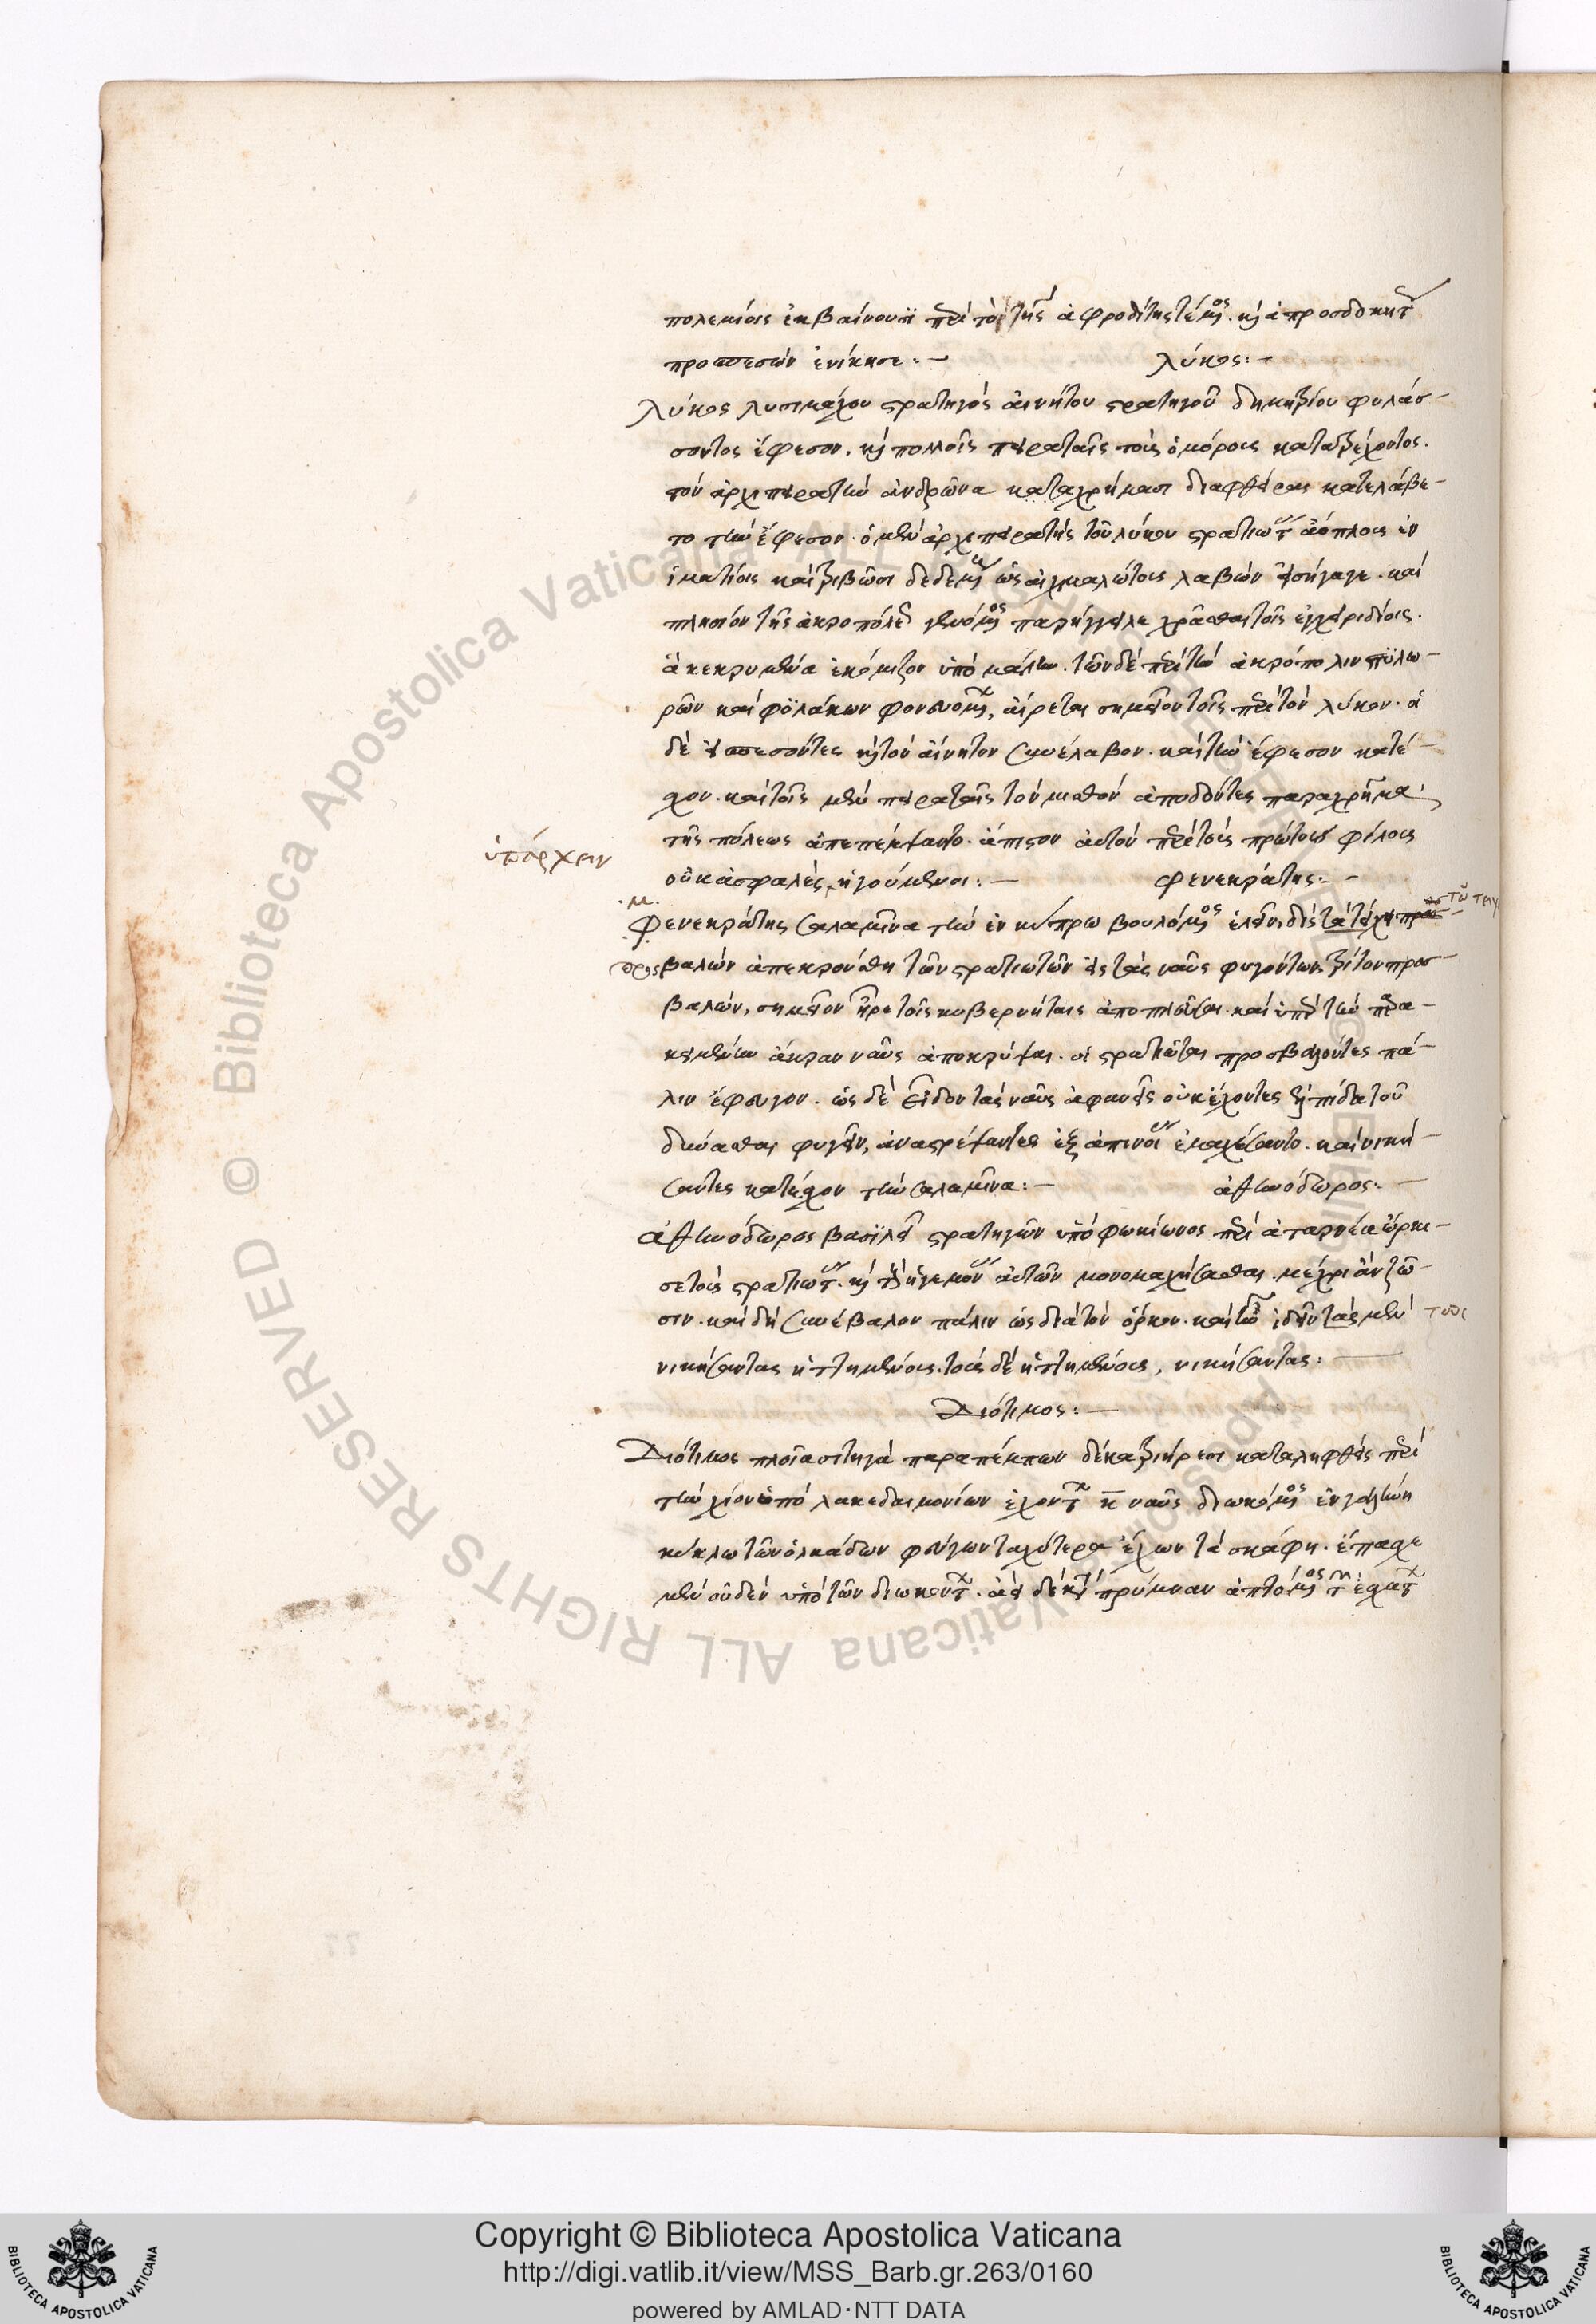 πολεμίοις ἐκβαίνουσι περὶ τὸ τῆς ἀφροδίτης τέμενος. καὶ ἀπροσδοκήτοις
προσπεσὼν ἐνίκησε:— λύκος:—
Λύκος λυσιμάχου στρατηγὸς αἰνήτου στρατηγοῦ δημητρίου φυλάσ-
σοντος ἔφεσον. καὶ πολλοῖς πειραταῖς τοὺς ὁμόρους κατατρέχοντος.
τὸν ἀρχιπειρατὴν ἀνδρῶνα καταχρήμασι διαφθείρας κατελάβε-
το τὴν ἔφεσον. ὁ μὲν ἀρχιπειρατὴς τοῦ λύκου στρατιώτας ἀόπλους ἐν
ἱματίοις καὶ τρίβωσι δεδεμένους ὡς αἰχμαλώτους λαβὼν εἰσήγαγε. καὶ
πλησίον τῆς ἀκροπόλεως γενόμενος παρήγγειλε χρᾶσθαι τοῖς ἐγχειριδίοις.
ἃ κεκρυμμένα ἐκόμιζον ὑπὸ μάλης. τῶν δὲ περὶ τὴν ἀκρόπολιν πυλω-
ρῶν καὶ φυλάκων φονευομένων, αἴρεται σημεῖον τοῖς περὶ τὸν λύκον. οἱ
δὲ εἰσπεσόντες καὶ τὸν αἴνητον συνέλαβον. καὶ τὴν ἔφεσον κατέ-
χον. καὶ τοῖς μὲν πειραταῖς τὸν μισθὸν ἀποδόντες παραχρῆμα
τῆς πόλεως ἀπεπέμψαντο. ἄπιστον αὐτὸν περὶ τοὺς πρώτους φίλους
ὑπάρχειν
οὐκ ἀσφαλὲς ἡγούμενοι:— φενεκράτης:—
.μ.
Φενεκράτης σαλαμῖνα τὴν ἐν κύπρω βουλόμενος ἑλεῖν, δὶς τὰ τείχη προσ-
προσβαλὼν ἀπεκρούσθη τῶν στρατιωτῶν εἰς τὰς ναῦς φυγόντων. τρίτον προσ-
βαλὼν, σημεῖον ἦρε τοῖς κυβερνήταις ἀποπλεῦσαι. καὶ ὑπὲρ τὴν παρα-
κειμένην ἄκραν ναῦς ἀποκρύψαι. οἱ στρατιῶται προσβαλόντες πά-
λιν ἔφευγον. ὡς δὲ εἶδον τὰς ναῦς ἀφανεῖς οὐκ ἔχοντες ἐλπίδα τοῦ
δύνασθαι φυγεῖν, ἀναστρέψαντες ἐξ ἀπίνου ἐμαχέσαντο. καὶ νική-
σαντες κατέχον τὴν σαλαμῖνα:— ἀθηνόδωρος:—
Ἀθηνόδωρος βασιλεῖ στρατηγῶν ὑπὸ φωκίωνος περὶ ἀταρνέα ὥρκι-
σε τοὺς στρατιώτας. καὶ τοὺς ἡγεμόνας αὐτῶν μονομαχήσασθαι. μέχρι ἂν ζῶ-
σιν. καὶ δὴ συνέβαλον πάλιν ὡς διὰ τὸν ὅρκον. καὶ τῶ ἰδεῖν τὰς μὲν τοὺς
νικήσαντας ἡττημένους. τοὺς δὲ ἡττημένους, νικήσαντας:
Διότιμος:—
Διότιμος πλοῖα σιτηγὰ παραπέμπων δέκα τριήρεσι καταληφθεὶς περὶ
τὴν χίον ὑπὸ λακεδαιμονίων ἐχόντων κ ναῦς διωκόμενος ἐν γαλήνη
κύκλω τῶν ὁλκάδων φεύγων ταχύτερα ἔχων τὰ σκάφη. ἔπασχε
μὲν οὐδὲν ὑπὸ τῶν διωκόντων. ἀεὶ δὲ κατὰ πρύμναν ἁπτόμενος τῶν ἐσχάτων